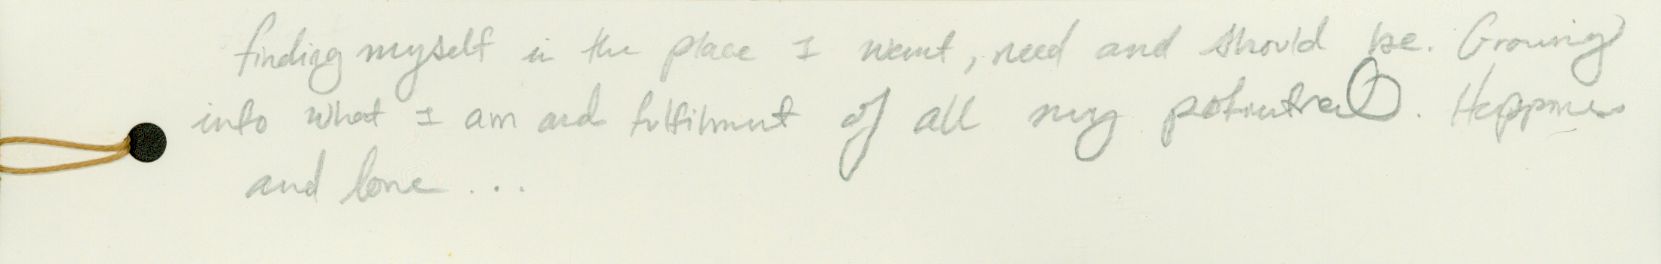 finding myself in the place I want, need and should be. Growing
into what I am and fulfilment of all my potential. Happiness
and love...